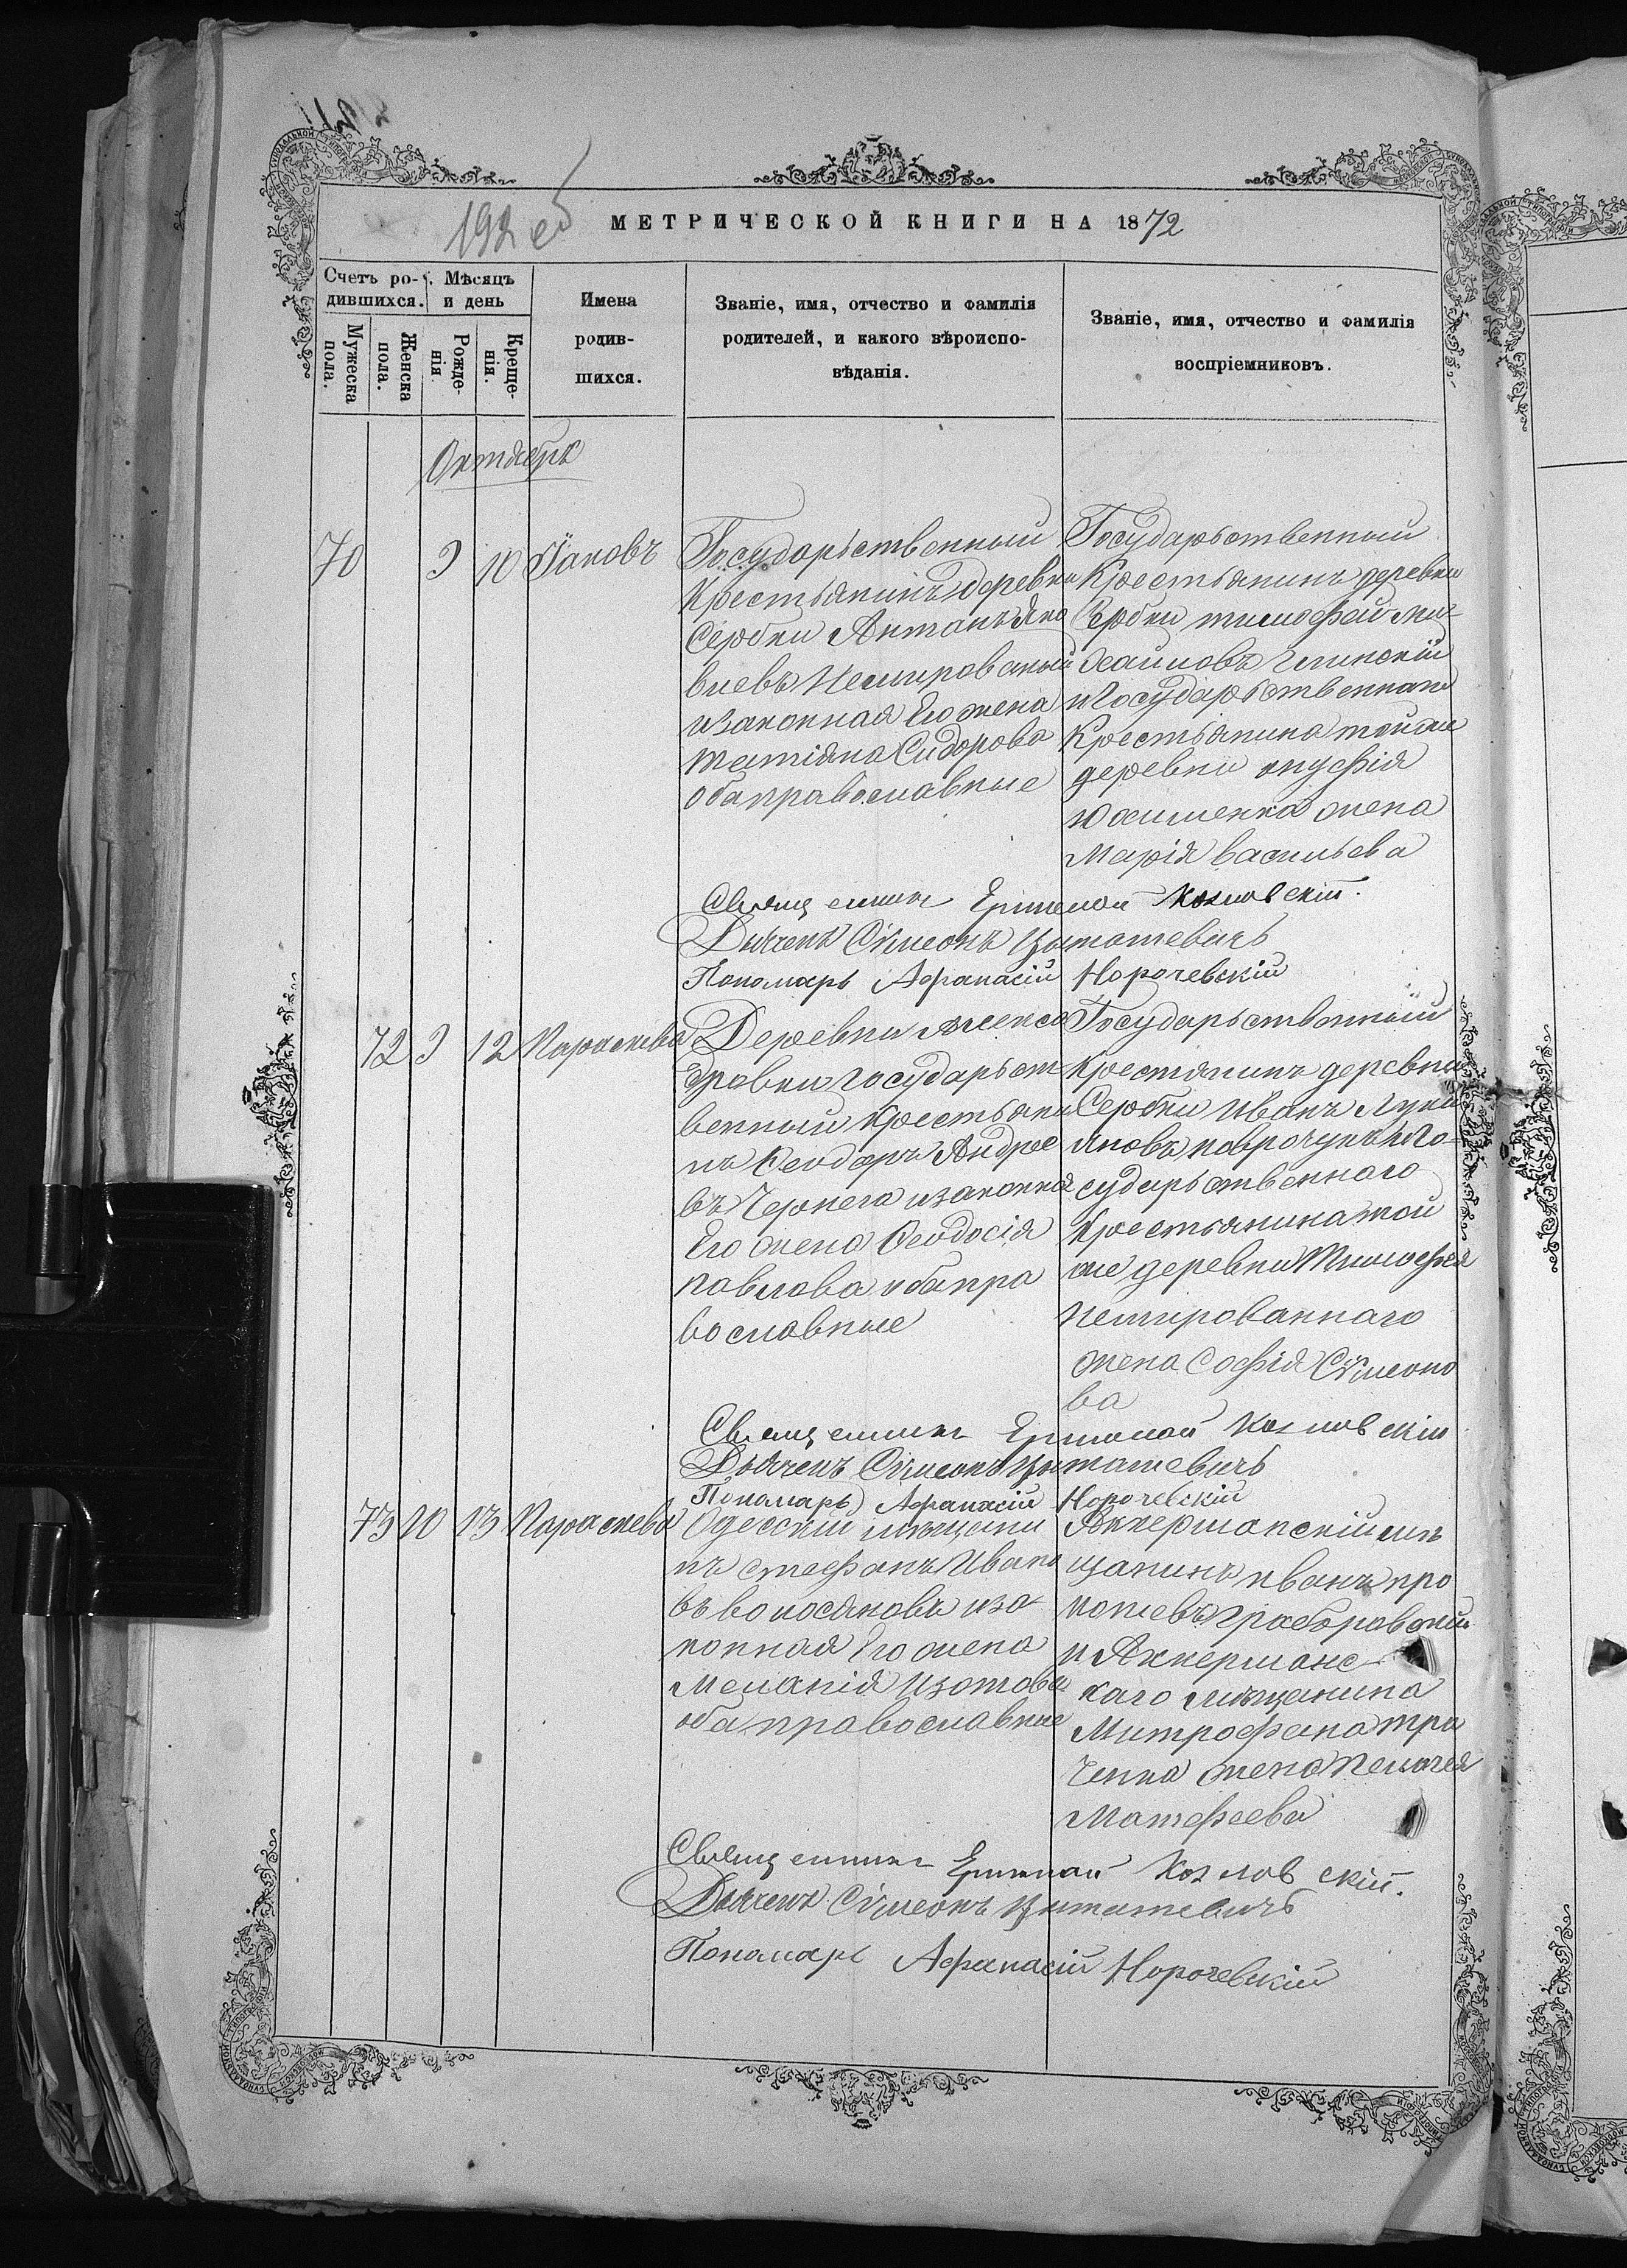 192 об
МЕТРИЧЕСКОЙ КНИГИ НА 1872
Счетъ ро-
дившихся.
Мѣсяцъ
и день
Мужеска
пола.
Женска
пола.
Рожде-
нія.
Креще-
нія.
Имена
родив-
шихся.
Званіе, имя, отчество и фамилія
родителей, и какого вѣроиспо-
вѣданія.
Званіе, имя, отчество и фамилія
воспріемниковъ.
Октябрь
70 9 10 Іаковъ
Государьственный
Крестьянинъ деревни
Сербки Антонъ Яко
влевъ Немировский
и законная Его жена
татіяна Сидорова
оба православные
Государьственный
Крестьянинъ деревни
Сербки тимофей ми-
хайловъ Глинскій
и Государьственнаго
Крестьянина той же
деревни
жена
Марія васильева
Священникъ Козловскій.
Дьячекъ Сѵмеонъ
Пономарь Афанасій Норочевскій
72 9 12 Параскева
Деревни Алекса
дровки государьст
венный крестьяни
нъ Феодоръ Андрее
въ и законная
Его жена Феодосія
павлова оба пра
вославные
Государьственный
крестянинъ деревни
Сербки Иванъ Луки
яновъ и Го-
сударьственнаго
Крестьянина той
же деревни Тимофея
немированнаго
жена Софія Сѵмеоно
ва
Священникъ Козловскій
Дьячекъ Сѵмеонъ
Пономарь Афанасій Норочевскій
73 10 13 Параскева
Одесскій мѣщани
нъ стефанъ Ивано
въ волосяновъ и за
конная Его жена
Меланія Изотова
оба православные
Аккерманскій мѣ
щанинъ иванъ про
копіевъ
и Аккерманс
каго мѣщанина
Митрофана
жена пелагея
Матфеева
Священникъ Козловскій.
Дьячекъ Сѵмеонъ
Пономарь Афанасій Норочевскій